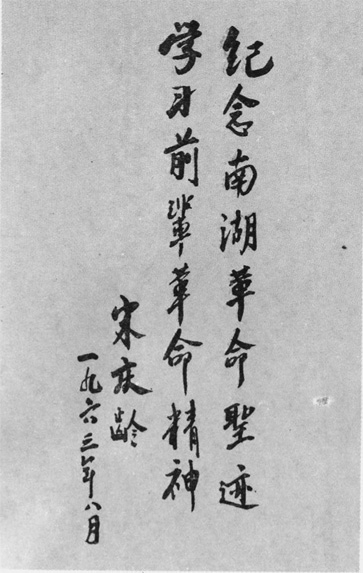 纪念南湖革命聖迹
学习前辈革命精神
宋庆龄
一九六三年八月